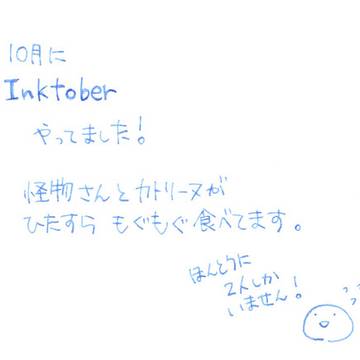 10月に
Inktober
やってました!
怪物さんとカトリーヌが
ひたすら もぐもぐ食べてます。
ほんとうに
2人しか
いません!